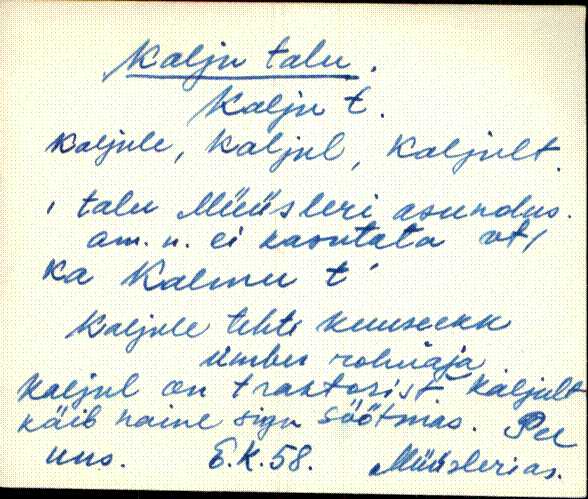 Kalju talu.
Kalju t.
Kaljule, Kaljul, Kaljult.
, talu Müüsleri asundus.
am. n. ei kasutata vt,
ka Kalmu t'
Kaljule tehti kuuseekk
ümber rohuaja
Kaljul on traktorist Kaljult
käib naine sigu söötmas. Pee
uus. E.K. 58. Müüslerias.